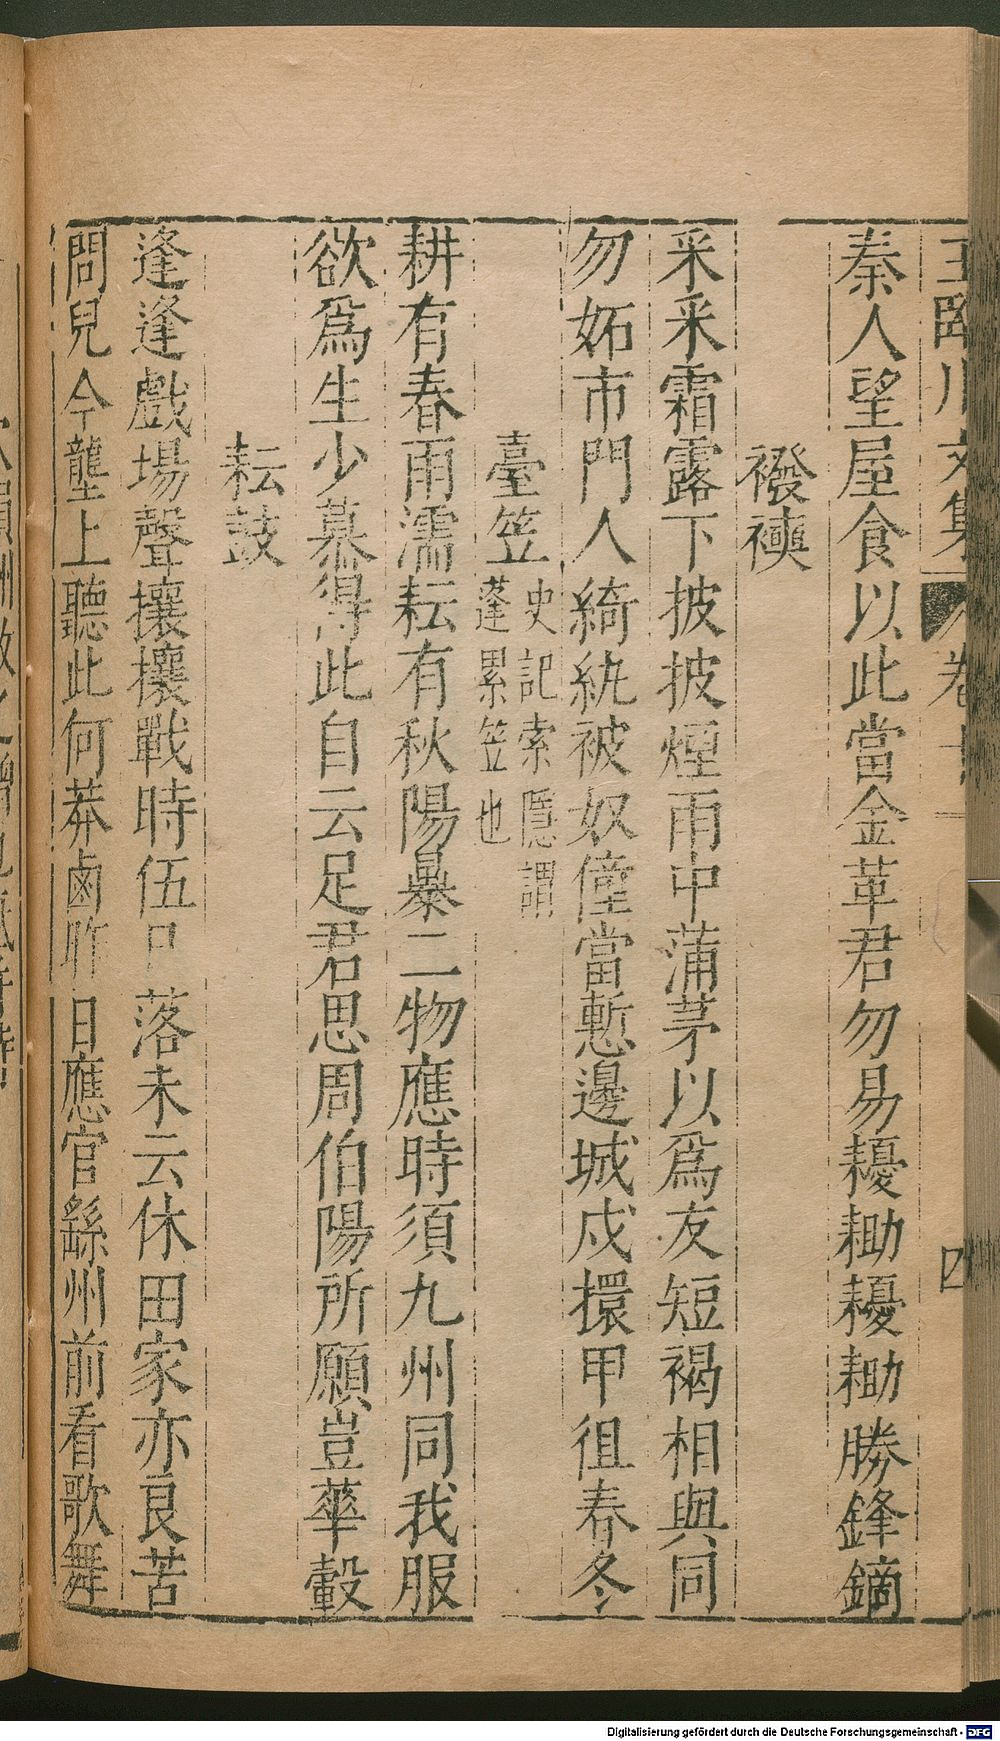 秦人望屋食以此當金革君勿易耰耡耰耡勝鋒鏑
襏襫
采采霜露下披披煙雨中蒲茅以爲友短褐相與同
勿妬市門人綺紈被奴僮當慙邊城戍擐甲徂春冬
臺笠史記索隱謂
蓬累笠也
耕有春雨濡耘有秋陽暴二物應時須九州同我服
欲爲生少慕得此自云足君思周伯陽所願豈華轂
耘鼓
逢逢戲場聲攘攘戰時伍日落未云休田家亦良苦
問兒今壟上聽此何莽鹵昨日應官繇州前看歌舞
Digitalisierung gefördert durch die Deutsche Forschungsgemeinschaft - DFG